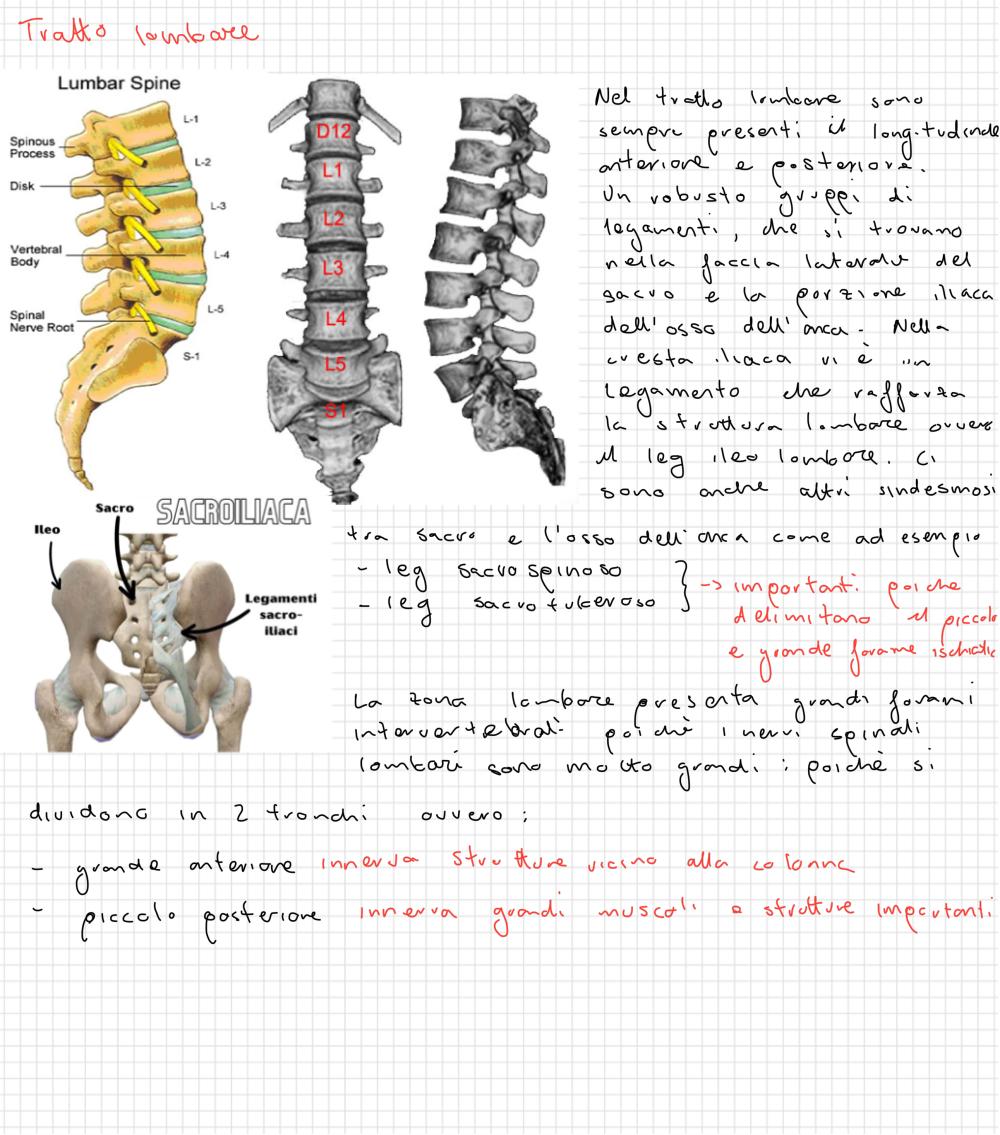 Tratto lombare
Lumbar Spine
Spinous
Process
Disk
Vertebral
Body
Spinal
Nerve Root
L-1
L-2
L-3
L-4
L-5
S-1
D12
L1
L2
L3
L4
L5
S1
Nel tratto lombare sono
sempre presenti il longitudinale
anteriore e posteriore.
Un robusto gruppi di
legamenti, che si trovano
nella faccia laterale del
sacro e la porzione iliaca
dell'osso dell'anca. Nella
cresta iliaca vi è un
legamento che rafforza
la struttura lombare ovvero
il leg ileo lombare. Ci
sono anche altri sindesmosi
SACROILIACA
Sacro
Ileo
Legamenti
sacro-
iliaci
tra sacro e l'osso dell'anca come ad esempio
- leg sacro spinoso
- leg sacro tuberoso
-> importanti poiche
delimitano il piccolo
e grande forame ischiatic
La zona lombare presenta grandi forami
intervertebrali poichè i nervi spinali
lombari sono molto grandi ; poichè si
dividono in 2 tronchi ovvero :
- grande anteriore innerva strutture vicino alla colonna
- piccolo posteriore innerva grandi muscoli e strutture importanti